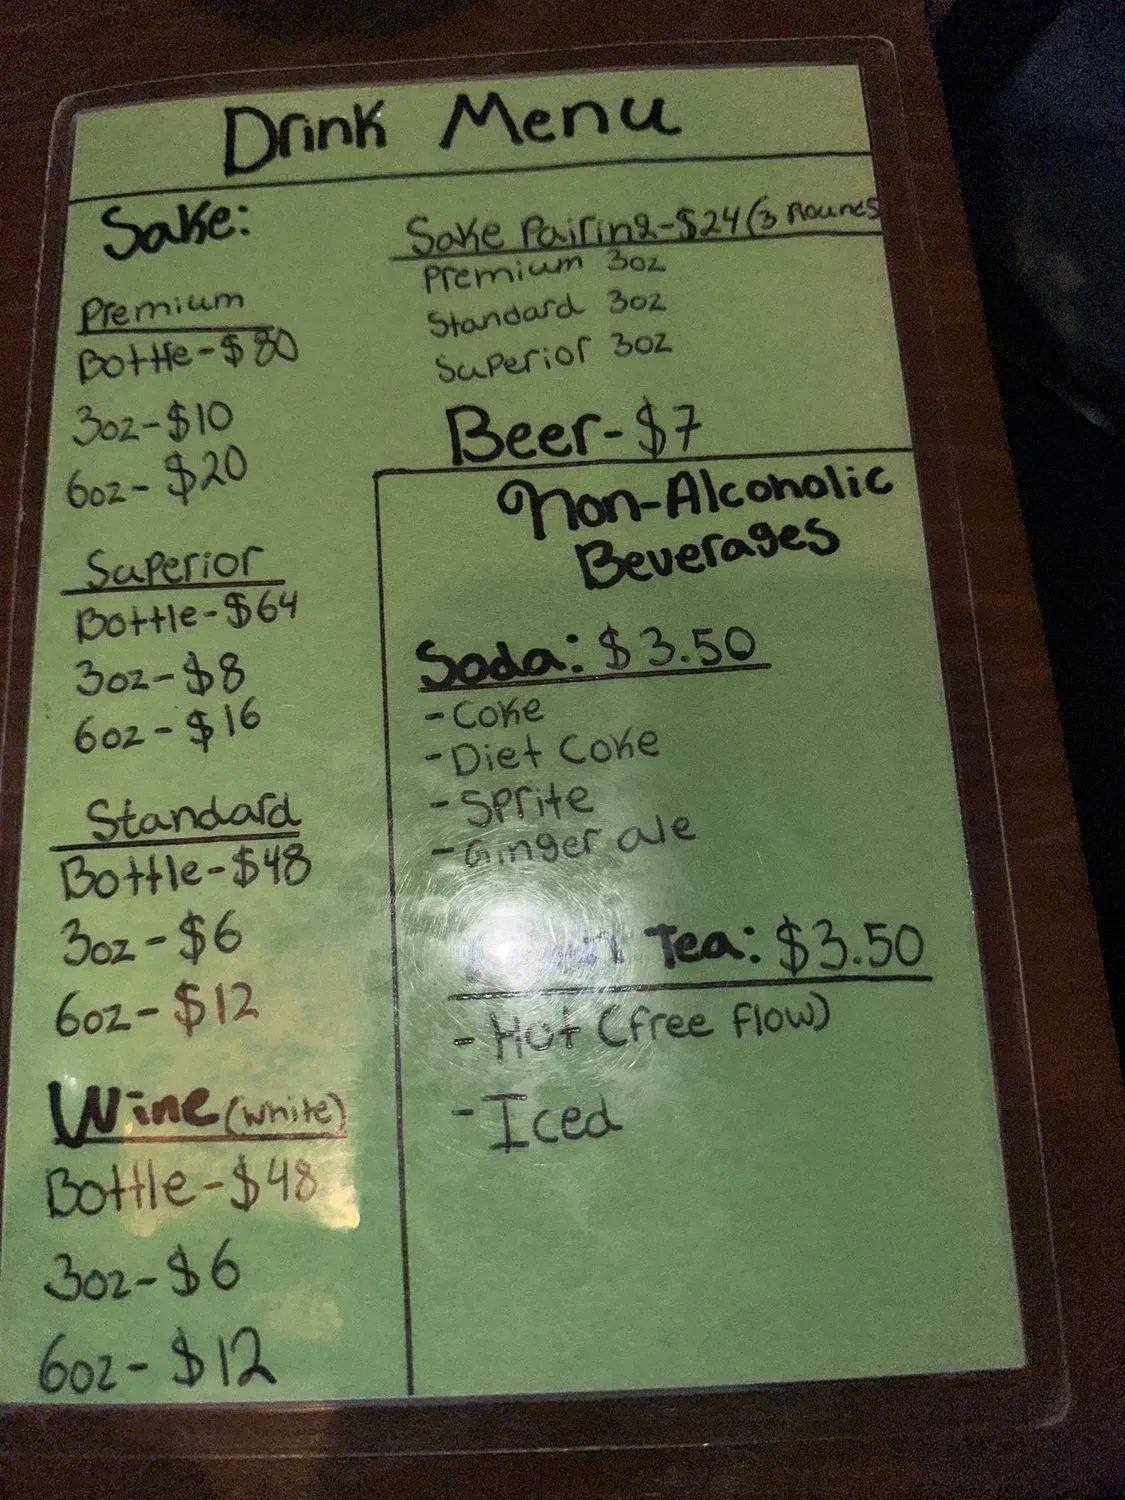 Drink Menu
Sake:
Premium
Bottle-$80
3oz-$10
6oz-$20
Superior
Bottle-$64
3oz-$8
6oz-$16
Standard
Bottle-$48
3oz-$6
6oz-$12
Wine (white)
Bottle-$48
3oz-$6
6oz-$12
Sake Pairing-$24 (3 Rounds
Premium 3oz
Standard 3oz
Superior 3oz
Beer-$7
Non-Alcoholic
Beverages
Soda: $3.50
-Coke
-Diet Coke
-Sprite
-Ginger ale
Tea: $3.50
-Hot (free flow)
-Iced